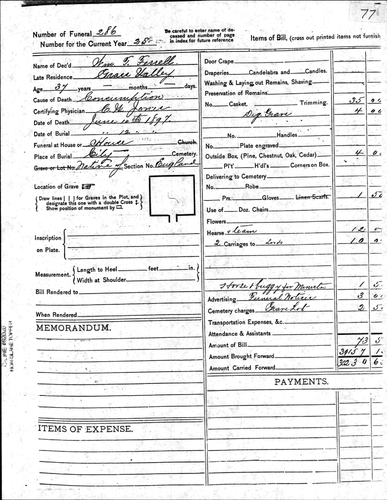 77
Number of Funeral 286
Number for the Current Year 25
Be careful to enter name of deceased and number of page in index for future reference
Items of Bill, (cross out printed items not furnish
Name of Dec'd Wm T. Terrell
Late Residence Grass Valley
Age 37 years – months – days.
Cause of Death Consumption
Certifying Physician C. W. Jones
Date of Death June 10th 1897.
Date of Burial " 12 "
Funeral at House or House Church.
Place of Burial City Cemetery.
Grave or Lot No. Native of Section No. England
Location of Grave
Draw lines | | for Graves in the Plot, and designate this one with a double Cross
Show position of monument by
Inscription on Plate.
Measurement. Length to Heel feet in.
Width at Shoulder "
Bill Rendered to
When Rendered
MEMORANDUM.
ITEMS OF EXPENSE.
Door Crape
Draperies Candelabra and Candles.
Washing & Laying out, Remains, Shaving
Preservation of Remains
No. Casket, Trimming. 35 0
Dig Grave 4 0
No. Handles
No. Plate engraved
Outside Box, (Pine, Chestnut, Oak, Cedar) 4 0
P'f H'd's Corners on Box.
Delivering to Cemetery
No. Robe
Prs. Gloves Linen Scarfs 1 5
Use of Doz. Chairs
Flowers
Hearse & team 12
2 Carriages to 10 0
1 Horse & buggy for Minister 1 5
Advertising Funeral Notice 3 0
Cemetery charges Grave Lot 2 5
Transportation Expenses, &c.
Attendance & Assistants
Amount of Bill 73 5
Amount Brought Forward
Amount Carried Forward
PAYMENTS.